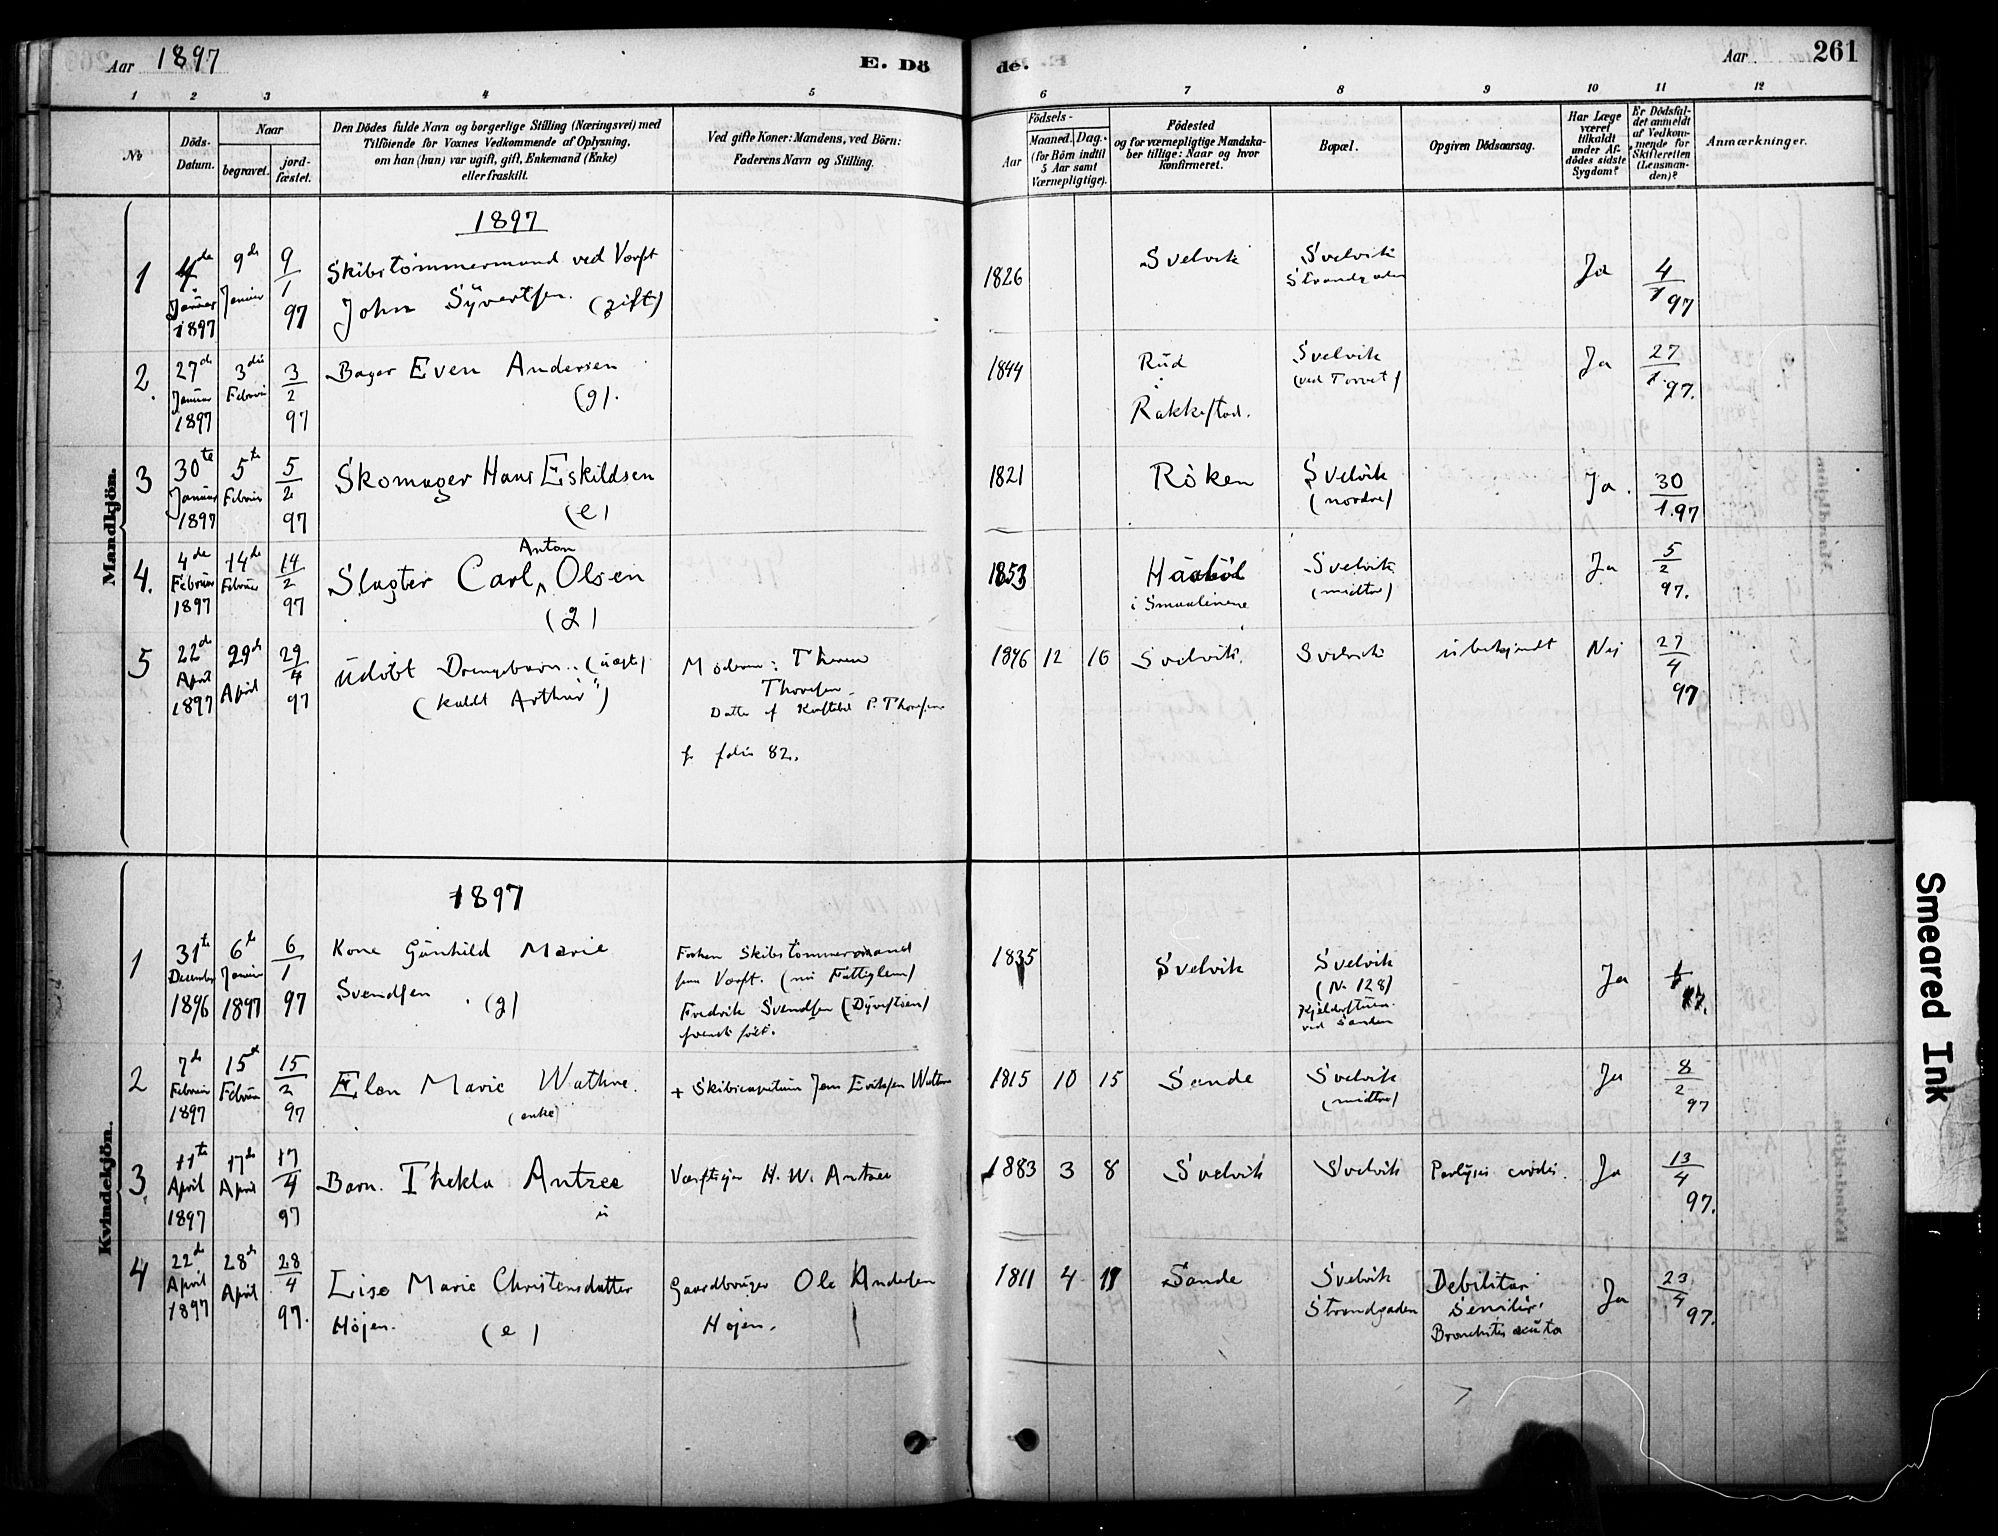 Aar 1897
E. Dö
de.
Aar
261
1 2 3 4 5 6 7 8 9 10 11 12
No
Döds-
Datum.
Naar
begravet.
jord-
fæstet.
Den Dödes fulde Navn og borgerlige Stilling (Næringsvei) med
Tilföiende for Voxnes Vedkommende af Oplysning,
om han (hun) var ugift, gift, Enkemand (Enke)
eller fraskilt.
Ved gifte Koner: Mandens, ved Börn:
Faderens Navn og Stilling.
Födsels-
Aar
Maaned.
Dag.
(for Börn indtil
5 Aar samt
Værnepligtige).
Födested
og for værnepligtige Mandska-
ber tillige: Naar og hvor
konfirmeret.
Bopæl.
Opgiven Dödsaarsag.
Har Læge
været
tilkaldt
under Af-
dödes sidste
Sygdom?
Er Dödsfal-
det anmeldt
af Vedkom-
mende for
Skifteretten
(Lensman-
den)?
Anmærkninger.
Mandkjön.
1897
1
4de
Januar
1897
9de
Januar
9
1
97
Skibstömmermand ved Værft
John Syvertsen. (gift)
1826
Svelvik
Svelvik
Strandgaden
Ja
4
1 97
2.
27de
Januar
1897
3die
Februar
3
2
97
Bager Even Andersen
(g).
1844
Rud
i
Rakkestad.
Svelvik
(ved Torvet)
Ja
27
1. 97.
3
30te
Januar
1897
5te
Februar
5
2
97
Skomager Hans Eskildsen
(e)
1821
Röken
Svelvik
(nordre)
Ja.
30
1.97
4.
4de
Februar
1897
14de
Februar
14
2
97
Anton
Slagter Carl ^ Olsen
(g)
1853
i Smaalenene
Svelvik
(midtre)
Ja
5
2
97.
5
22de
April
1897
29de
April
29
4
97
Udöbt Drengebarn. (uægte)
(kaldt Arthur")
Moderen: Therese
Thoresen
Datter af P. Thoresen
folio 82.
1896 12 16
Svelvik.
Svelvik
Ubekjendt
Nej
27
4
97
Kvindekjön.
1897
1
31te
December
1896
6te
Januar
1897
6
1
97
Kone Gunhild Marie
Svendsen (g)
Forhen Skibstömmermand
Værft. (nu Fattiglem)
Fredrik Svendsen
1835
Svelvik
Svelvik
(No 128)
ved Sanden
Ja
97.
2
7de
Februar
1897
15de
Februar
15
2
97
Elen Marie Wathne.
(enke)
+ Skibscaptain Jens Eriksen Wathne
1815 10 15
Sande
Svelvik
(midtre)
Ja
8
2
97
3.
11te
April
1897
17de
April
17
4
97
Barn. Thekla Antzee
u
Værftseier H. W. Antzee
1883 3 8
Svelvik
Svelvik
Paralysis cordis.
Ja
13
4
97.
4
22de
April
1897
28de
April
28
4
97.
Lise Marie Christensdatter
Höjen. (e)
Gaardbruger Ole Andersen
Hojen.
1811 4
Sande
Svelvik
Strandgaden
Debilitas
Senilis.
Bronchitis acuta
Ja
23
4
97.
Smeared Ink